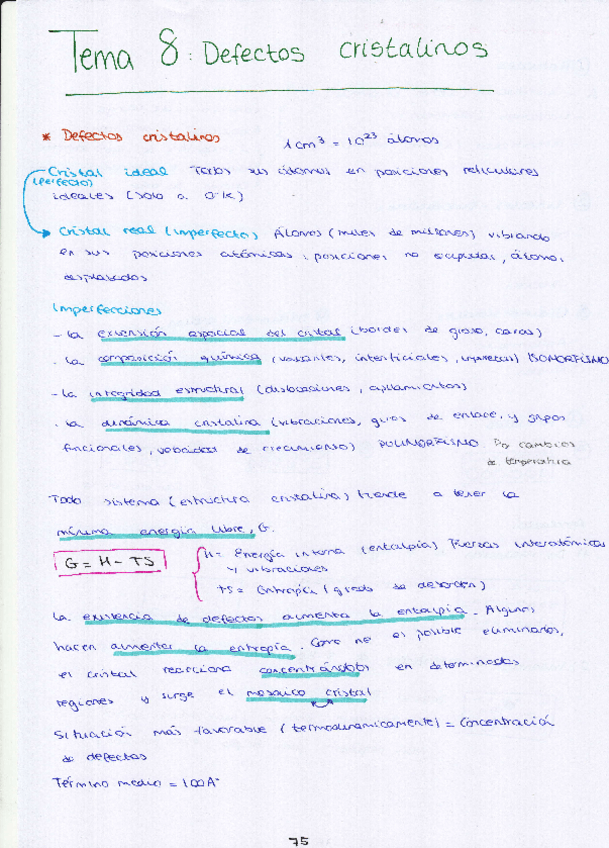 Tema 8: Defectos cristalinos
* Defectos cristalinos 1cm³ = 10²³ átomos
Cristal ideal Todos sus átomos en posiciones reticulares
(perfecto)
ideales (solo a 0ºK)
Cristal real (imperfecto) Átomos (miles de millones) vibrando
en sus posiciones atómicas, posiciones no ocupadas, átomos
desplazados
Imperfecciones
- La extensión espacial del cristal (bordes de grano, caras)
- La composición química (vacantes, intersticiales, impurezas) ISOMORFISMO
- La integridad estructural (dislocaciones, apilamientos)
- La dinámica cristalina (vibraciones, giros de enlace, y grupos
funcionales, velocidad de crecimiento) POLIMORFISMO Por cambios
de temperatura
Todo sistema (estructura cristalina) tiende a tener la
mínima energía libre, G.
G = H - TS
H = Energía interna (entalpía) Fuerzas interatómicas
y vibraciones
TS = Entropía (grado de desorden)
La existencia de defectos aumenta la entalpía. Algunos
hacen aumentar la entropía. Como no es posible eliminarlos,
el cristal reacciona concentrándolos en determinadas
regiones y surge el mosaico cristal
Situación más favorable (termodinamicamente) = Concentración
de defectos
Término medio = 100Aº
75